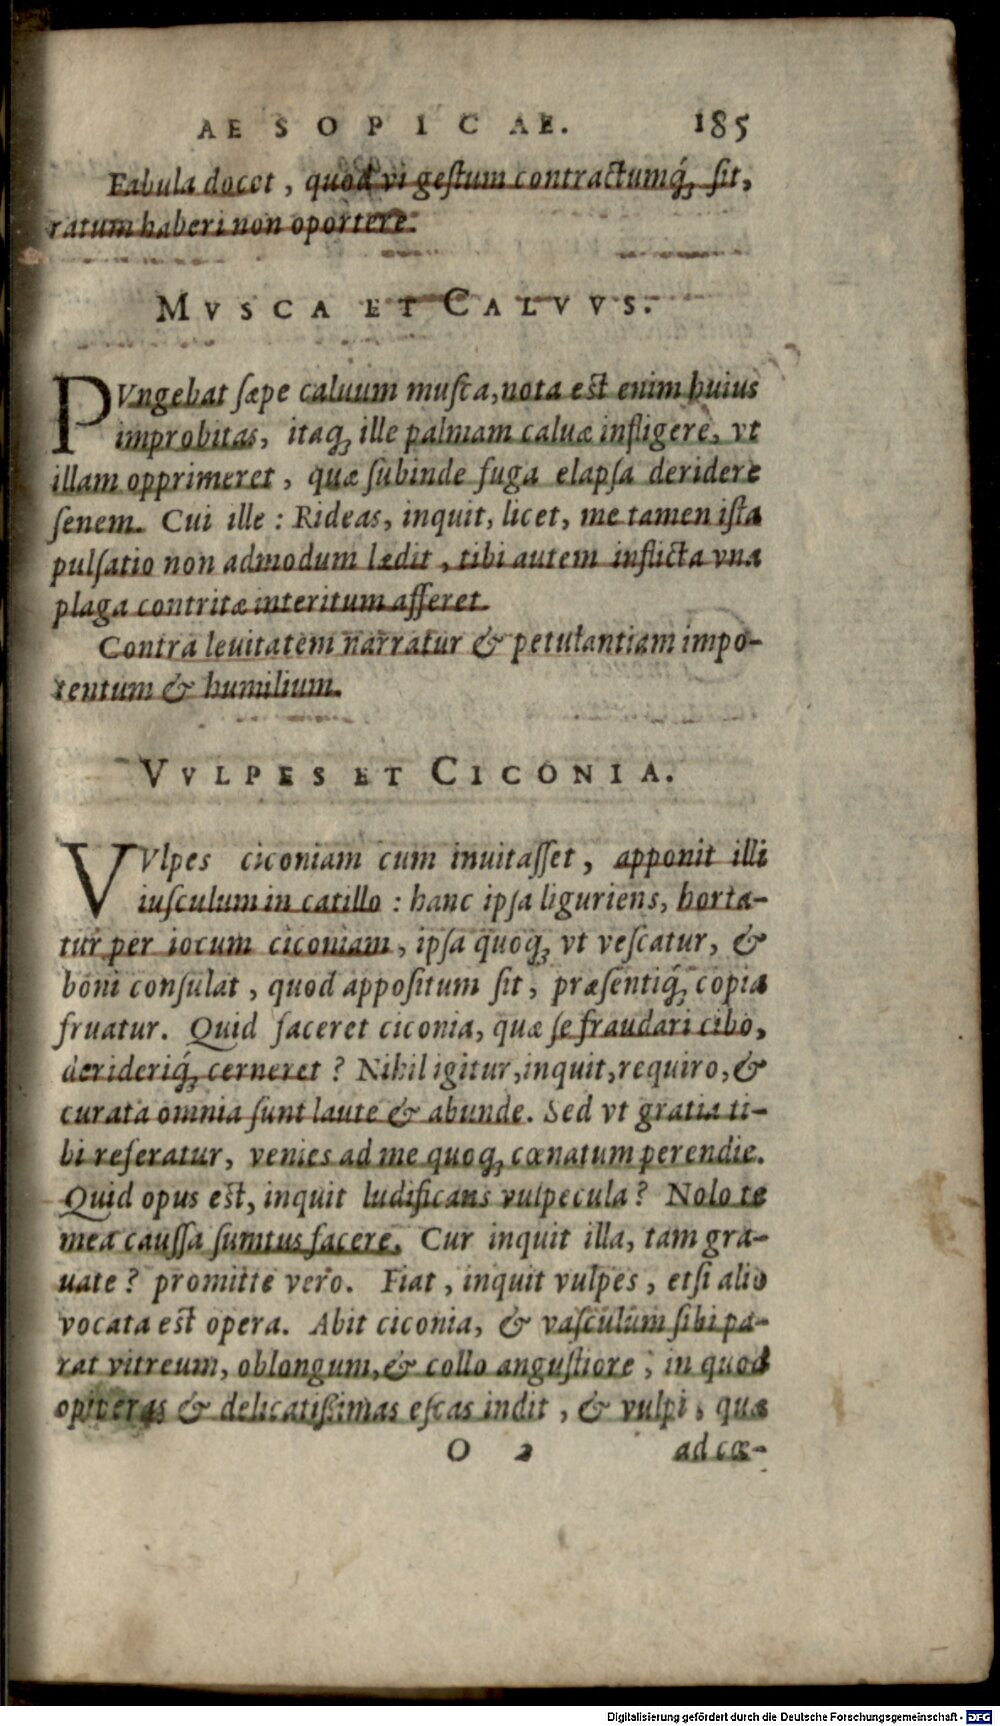 AESOPICAE. 185
Fabula docet, quod vi geſtum contractumq́; ſit,
ratum haberi non oportere.
MVSCA ET CALVVS.
PVngebat ſæpe caluum muſca, nota est enim huius
improbitas, itaq; ille palmam caluæ infligere, vt
illam opprimeret, quæ ſubinde fuga elapſa deridere
ſenem. Cui ille: Rideas, inquit, licet, me tamen iſta
pulſatio non admodum lædit, tibi autem inflicta vna
plaga contritæ interitum afferet.
Contra leuitatem narratur & petulantiam impo-
tentum & humilium.
VVLPES ET CICONIA.
VVlpes ciconiam cum inuitaſſet, apponit illi
iuſculum in catillo: hanc ipſa liguriens, horta-
tur per iocum ciconiam, ipſa quoq; vt veſcatur, &
boni conſulat, quod appoſitum ſit, præſentiq́; copia
fruatur. Quid faceret ciconia, quæ ſe fraudari cibo,
derideriq́; cerneret? Nihil igitur, inquit, requiro, &
curata omnia ſunt laute & abunde. Sed vt gratia ti-
bi referatur, venies ad me quoq; cœnatum perendie.
Quid opus est, inquit ludificans vulpecula? Nolo te
mea cauſſa ſumtus facere. Cur inquit illa, tam gra-
uate? promitte vero. Fiat, inquit vulpes, etſi alio
vocata est opera. Abit ciconia, & vaſculum ſibi pa-
rat vitreum, oblongum, & collo anguſtiore, in quod
opiteras & delicatiſſimas eſcas indit, & vulpi, quæ
O 2 ad cœ-
Digitalisierung gefördert durch die Deutsche Forschungsgemeinschaft - DFG